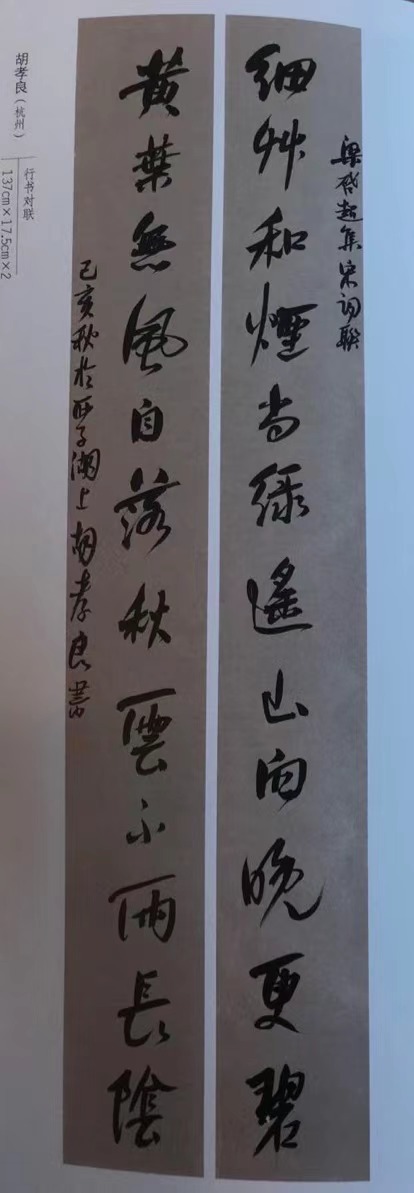 梁啓超集宋词联
细艸和煙尚绿遙山向晚更碧
黄葉無風自落秋雲不雨長陰
己亥秋於西子湖上胡孝良书
胡孝良（杭州）
行书对联
137cm×17.5cm×2